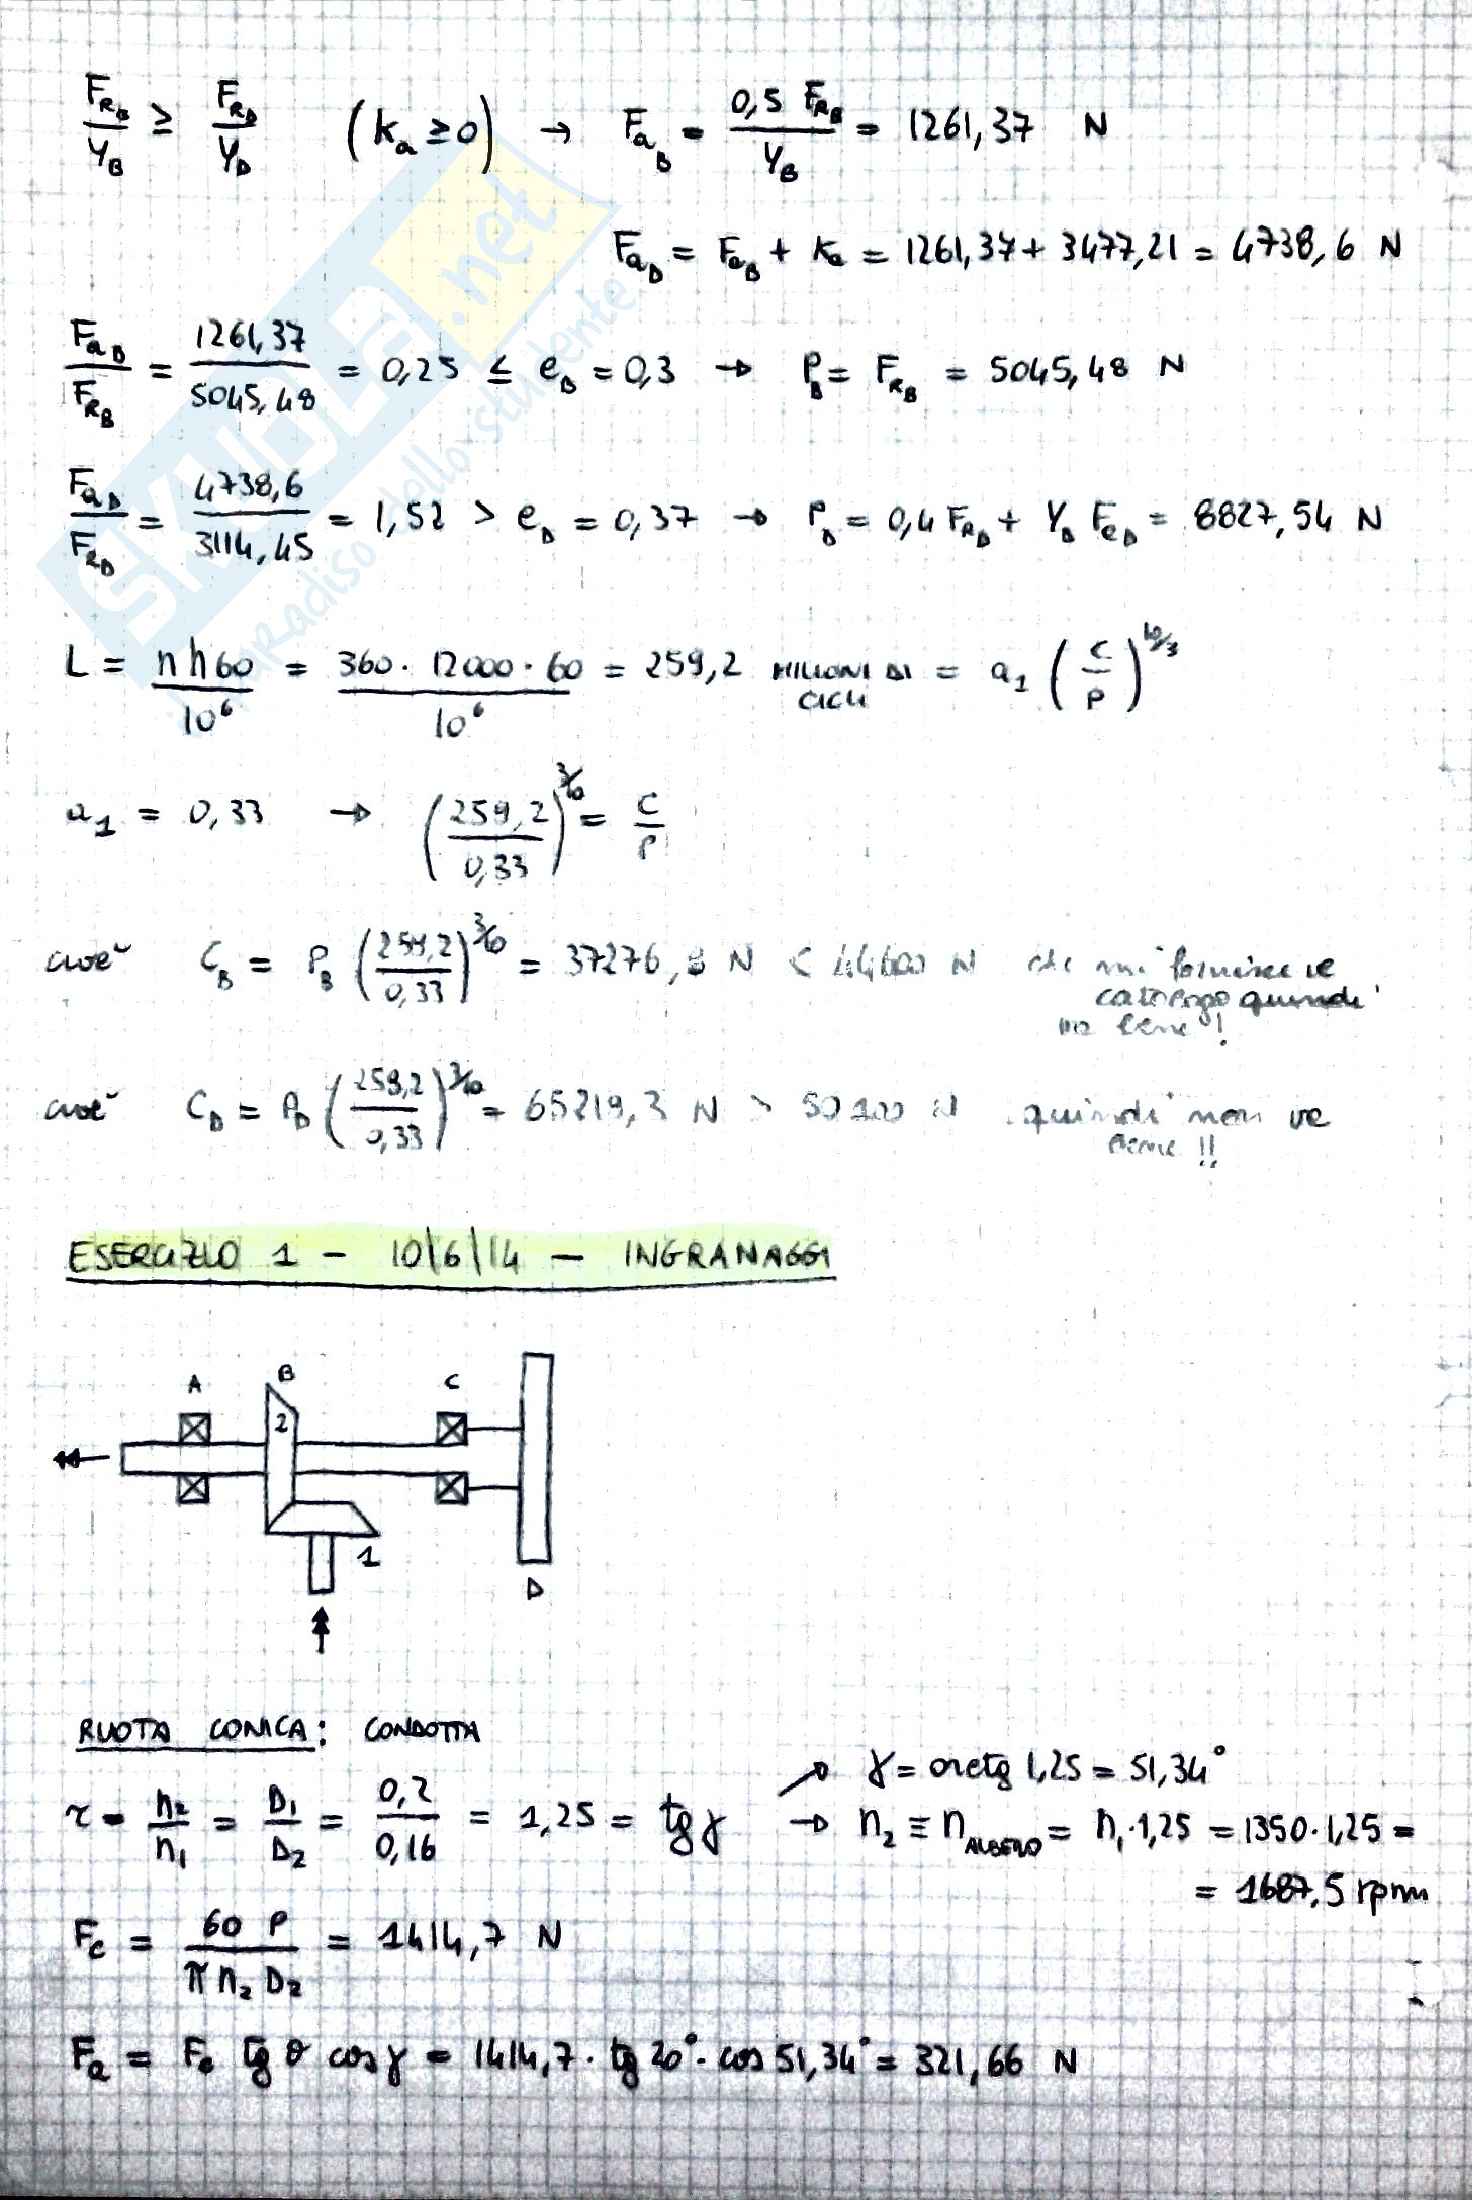 F_RB / Y_B ≥ F_RD / Y_D (Ka ≥ 0) → F_aB = 0,5 F_RB / Y_B = 1261,37 N
F_aD = F_aB + Ka = 1261,37 + 3477,21 = 4738,6 N
F_aB / F_RB = 1261,37 / 5045,48 = 0,25 ≤ e_B = 0,3 → P_B = F_RB = 5045,48 N
F_aD / F_RD = 4738,6 / 3114,45 = 1,52 > e_D = 0,37 → P_D = 0,4 F_RD + Y_D F_aD = 8827,54 N
L = n h 60 / 10^6 = 360 · 12000 · 60 / 10^6 = 259,2 MILIONI DI CICLI = a_1 (C / P)^10/3
a_1 = 0,33 → (259,2 / 0,33)^3/10 = C / P
cioè C_B = P_B (259,2 / 0,33)^3/10 = 37276,8 N < 44600 N che mi fornisce il
catalogo quindi
va bene !
cioè C_D = P_D (259,2 / 0,33)^3/10 = 65219,3 N > 50100 N quindi non va
bene !!
ESERCIZIO 1 - 10/6/14 - INGRANAGGI
A B C
2
1
D
RUOTA CONICA: CONDOTTA
γ = arctg 1,25 = 51,34°
τ = n_2 / n_1 = D_1 / D_2 = 0,2 / 0,16 = 1,25 = tg γ → n_2 ≡ n_ALBERO = n_1 · 1,25 = 1350 · 1,25 =
= 1687,5 rpm
F_c = 60 P / π n_2 D_2 = 1414,7 N
F_a = F_c tg θ cos γ = 1414,7 · tg 20° · cos 51,34° = 321,66 N
SKUOLA.net
il paradiso dello studente